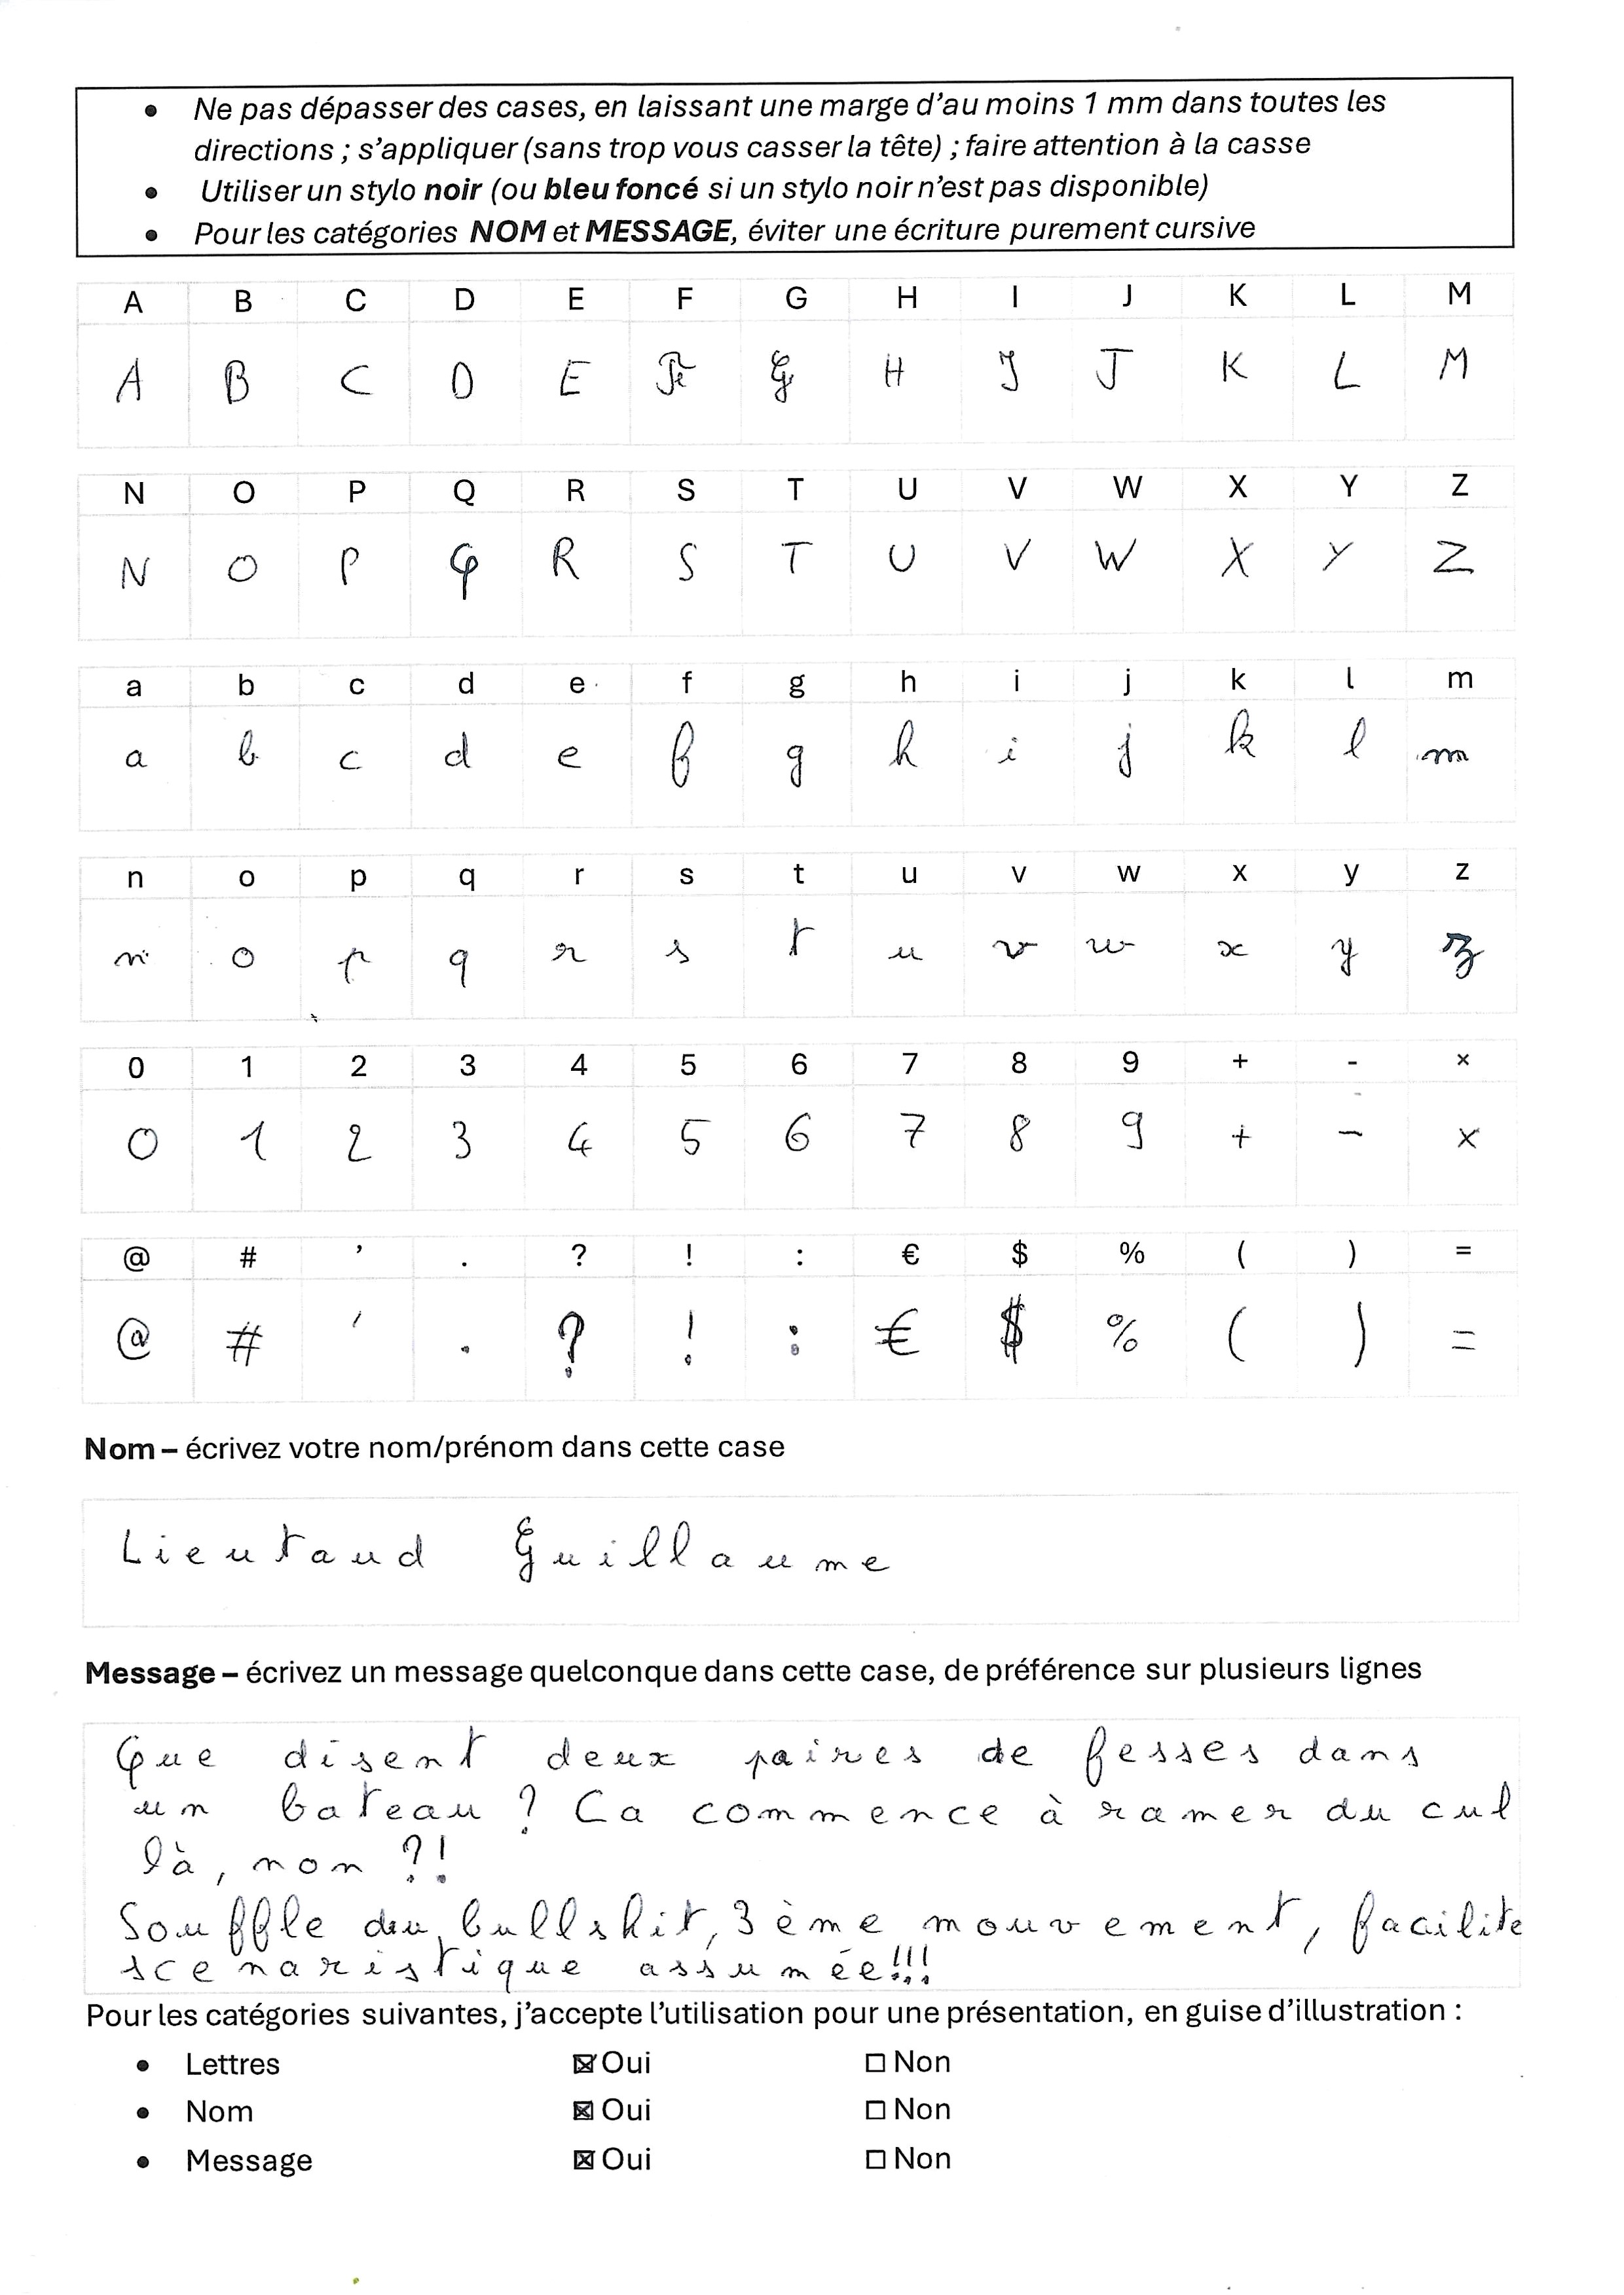 • Ne pas dépasser des cases, en laissant une marge d'au moins 1 mm dans toutes les
directions ; s'appliquer (sans trop vous casser la tête) ; faire attention à la casse
• Utiliser un stylo noir (ou bleu foncé si un stylo noir n'est pas disponible)
• Pour les catégories NOM et MESSAGE, éviter une écriture purement cursive
A B C D E F G H I J K L M
A B C D E F G H I J K L M
N O P Q R S T U V W X Y Z
N O P Q R S T U V W X Y Z
a b c d e f g h i j k l m
a b c d e f g h i j k l m
n o p q r s t u v w x y z
n o p q r s t u v w x y z
0 1 2 3 4 5 6 7 8 9 + - ×
0 1 2 3 4 5 6 7 8 9 + - ×
@ # ’ . ? ! : € $ % ( ) =
@ # ' . ? ! : € $ % ( ) =
Nom – écrivez votre nom/prénom dans cette case
Lieutaud Guillaume
Message – écrivez un message quelconque dans cette case, de préférence sur plusieurs lignes
Que disent deux paires de fesses dans
un bateau ? Ca commence à ramer du cul
là, non ?!
Souffle du bullshit, 3ème mouvement, facilite
scenaristique assumée!!!
Pour les catégories suivantes, j'accepte l'utilisation pour une présentation, en guise d'illustration :
• Lettres ☒ Oui ☐ Non
• Nom ☒ Oui ☐ Non
• Message ☒ Oui ☐ Non